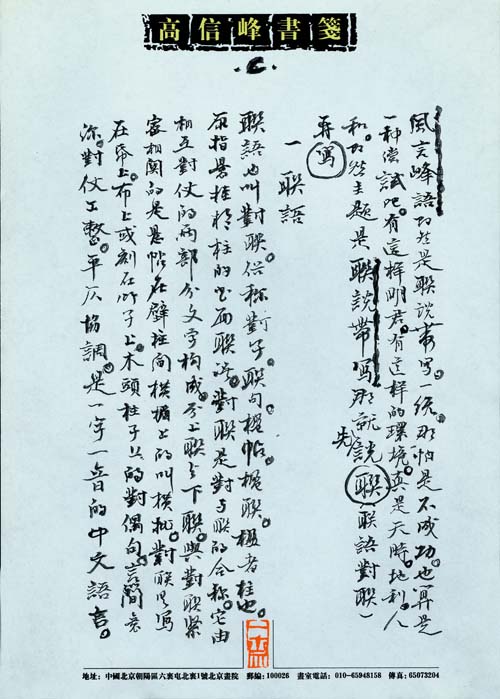 高信峰書箋
風言峰語既然是聯說帶寫一统。那怕是不成功。也算是
一种尝試吧。有這样明君。有這样的環境。真是天時。地利。人
和。既然主題是聯說帶寫那就先說聯（聯語對聯）
再寫
一 聯語
聯語也叫對聯。俗称對子。聯句。楹帖。楹聯。楹者柱也。
原指悬挂楹柱的书面聯语。對聯是對与聯的合称。它由
相互對仗的两部分文字构成。分上聯与下聯。與對聯緊
密相関的是悬帖在壁柱间横楣上的叫横批。對联只写
在帋上。布上或刻在竹子上。木頭柱子上的對偶句。言簡意
深。對仗工整。平仄協調。是一字一音的中文語言。
地址：中國北京朝陽區六裏屯北裏1號北京畫院 郵編：100026 畫室電話：010-65948158 傳真：65073204